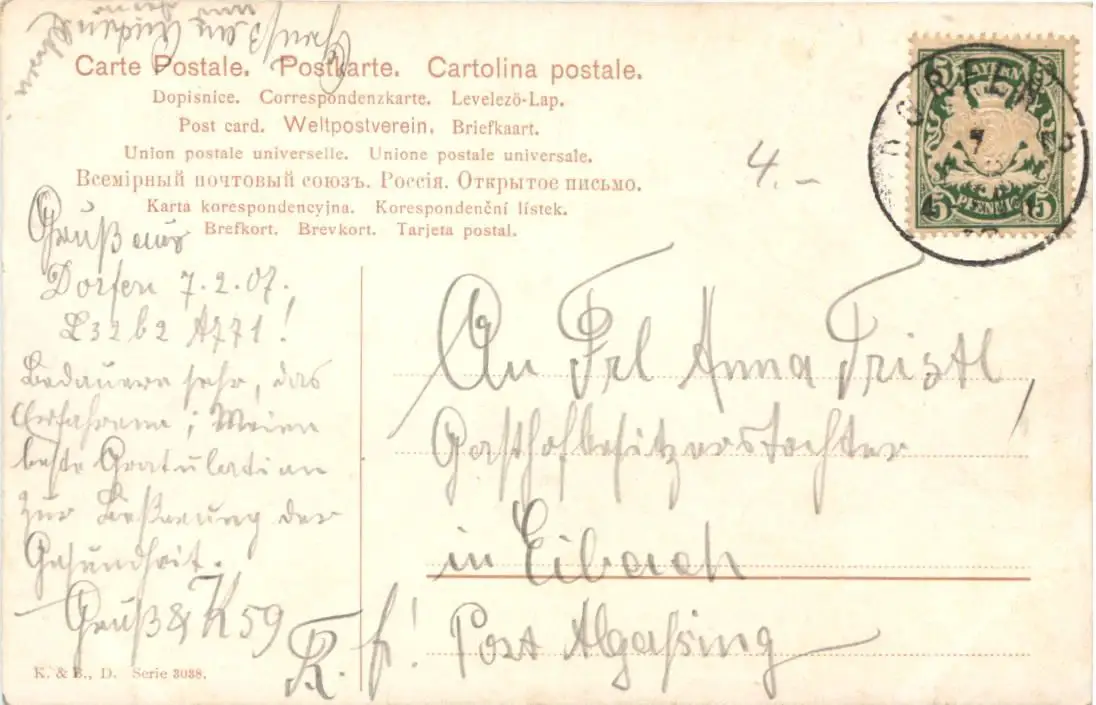 Carte Postale. Postkarte. Cartolina postale.
Dopisnice. Correspondenzkarte. Levelező-Lap.
Post card. Weltpostverein. Briefkaart.
Union postale universelle. Unione postale universale.
Всемірный почтовый союзъ. Россія. Открытое письмо.
Karta korespondencyjna. Korespondenční lístek.
Brefkort. Brevkort. Tarjeta postal.
BAYERN
5 5
PFENNIG
DORFEN
7
4.–
Gruß aus
Dorfen 7.2.07.
L32b2 A771!
Bedauere sehr, das
Erfahrene; Meine
beste Gratulation
zur Beßerung der
Gesundheit.
Gruß & K 59
R. f!
An Frl Anna Tristl,
Gasthofbesitzerstochter
in Eibach
Post Algaßing
K. & B., D. Serie 3038.